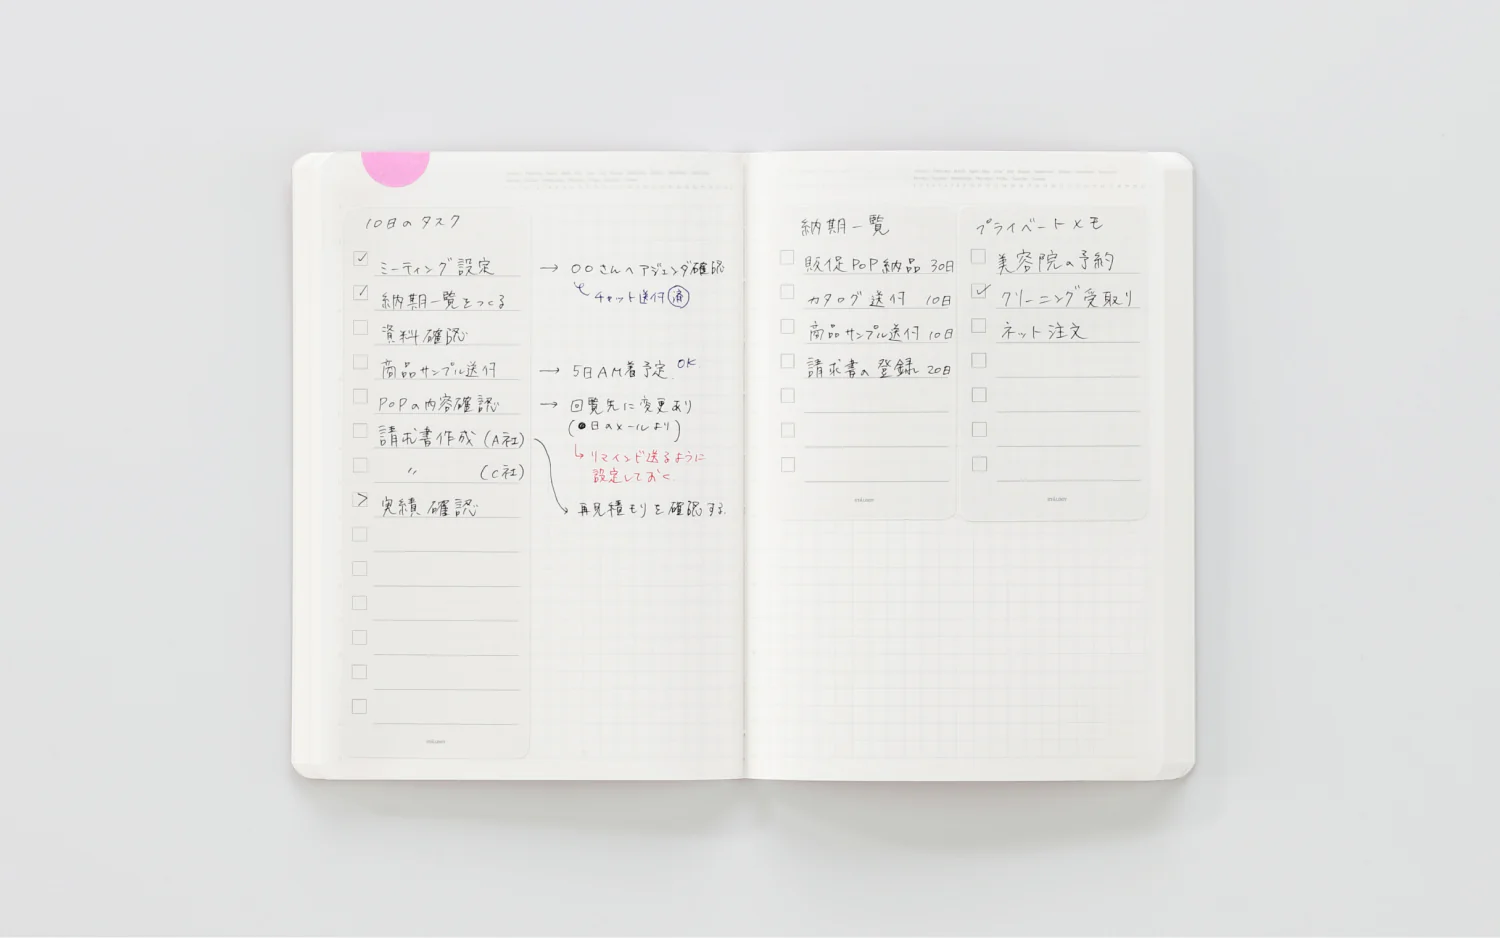 10日のタスク
ミーティング設定
納期一覧をつくる
資料確認
商品サンプル送付
POPの内容確認
請求書作成(A社)
〃 (C社)
実績確認
→ ○○さんへアジェンダ確認
チャット送付 済
→ 5日AM着予定 OK
→ 回覧先に変更あり
(●日のメールより)
リマインド送るように
設定しておく
再見積もりを確認する
納期一覧
販促POP納品 30日
カタログ送付 10日
商品サンプル送付 10日
請求書の登録 20日
プライベートメモ
美容院の予約
クリーニング受取り
ネット注文